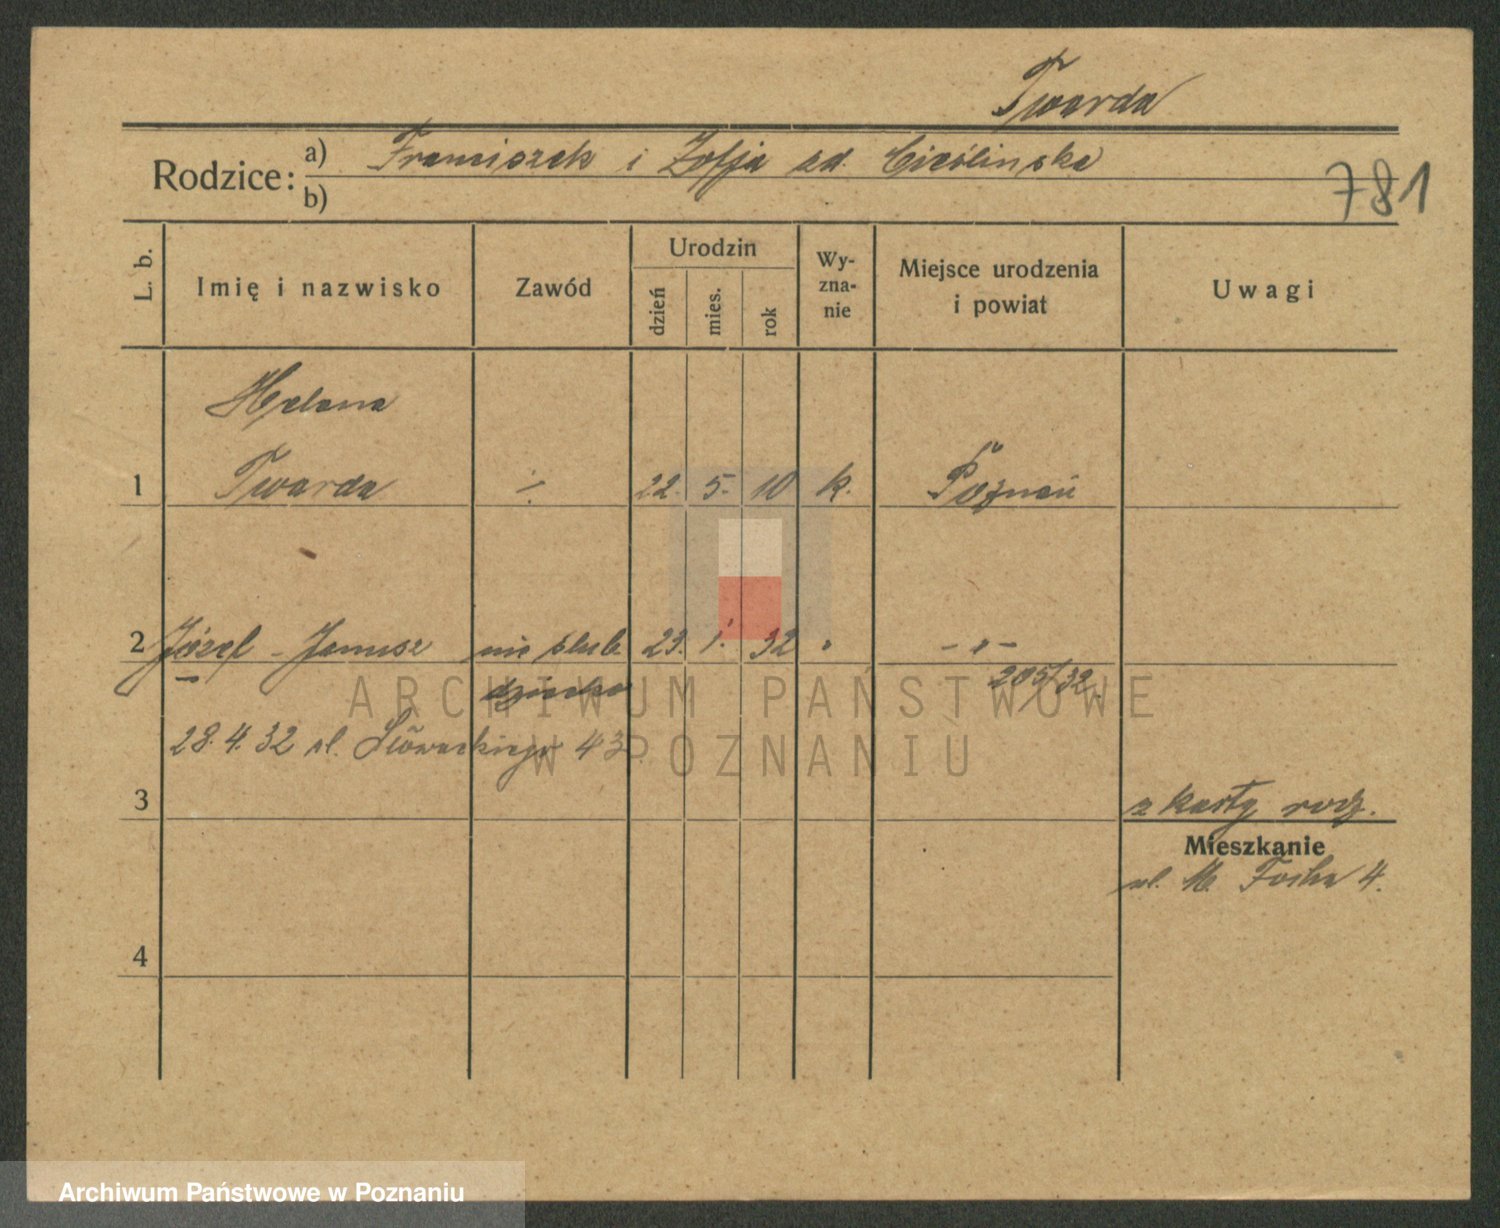 Twarda
Rodzice: a) Franciszek i Zofja zd. Cieślinska
b)
781
L. b.
Imię i nazwisko
Zawód
Urodzin
dzień
mies.
rok
Wy-
zna-
nie
Miejsce urodzenia
i powiat
Uwagi
Helena
1 Twarda ÷ 22. 5. 10 k. Poznań
2 Józef - Janusz nie ślub. 23. 1. 32 " - " -
dziecko 205/32.
28.4.32 ul. Słowackiego 43
3 z karty rodz.
Mieszkanie
ul. M. Focha 4.
4
ARCHIWUM PAŃSTWOWE
W POZNANIU
Archiwum Państwowe w Poznaniu